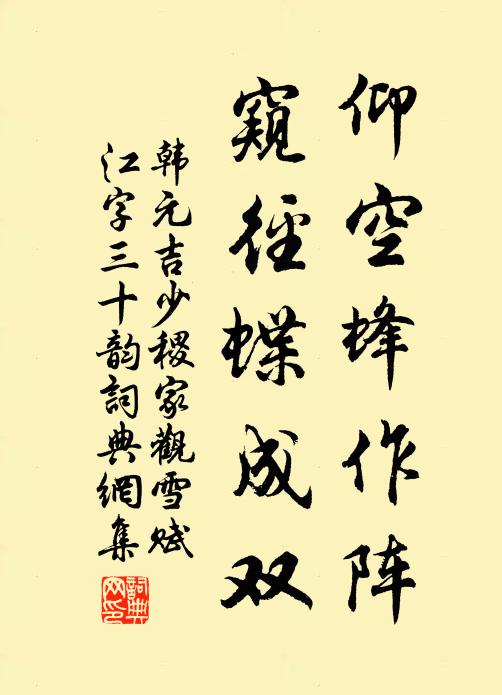 仰空蜂作阵
窥径蝶成双
韩元吉少稷家觀雪赋
江字三十韵詞典網集
詞典网印